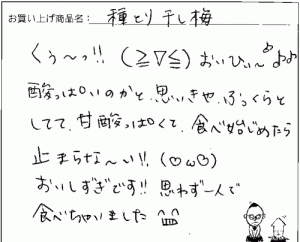 お買い上げ商品名: 種とり干し梅
くぅ〜っ!! (≧∇≦) おいひぃ〜♪♪
酸っぱいのかと思いきや、ぷっくらと
してて、甘酸っぱくて、食べ始じめたら
止まらな〜い!! (♡ω♡)
おいしすぎです!! 思わず一人で
食べちゃいました